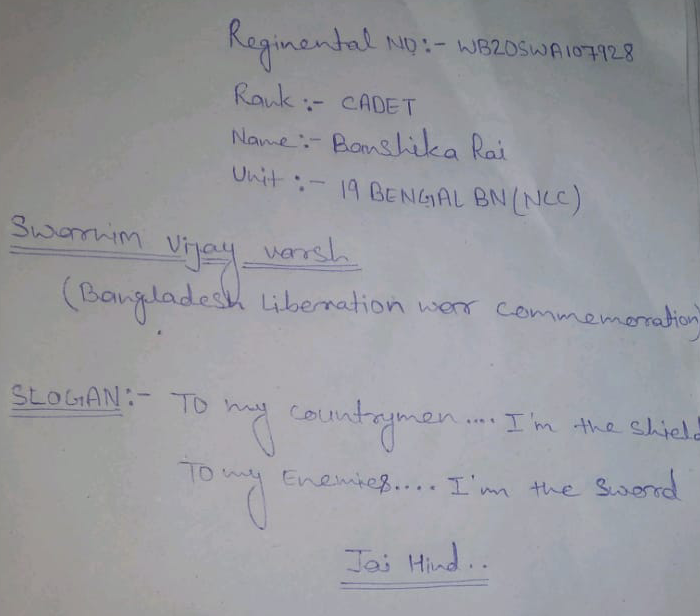 Reginental NO:- WB20SWA107928
Rank :- CADET
Name:- Banshika Rai
Unit :- 19 BENGAL BN (NCC)
Swarnim Vijay varsh
(Bangladesh Liberation war commemoration)
SLOGAN:- TO my countrymen.... I'm the shield
TO my Enemies.... I'm the Sword
Jai Hind..